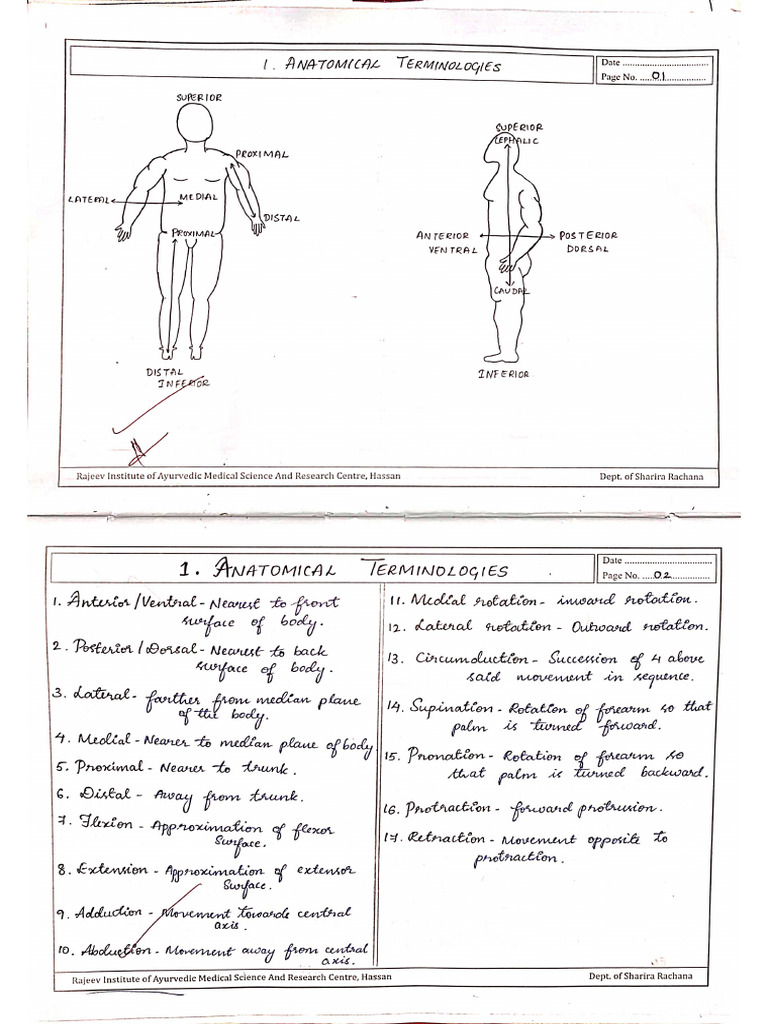 1. ANATOMICAL TERMINOLOGIES
Date ..................................
Page No. .....01................
SUPERIOR
PROXIMAL
LATERAL
MEDIAL
DISTAL
PROXIMAL
DISTAL
INFERIOR
SUPERIOR
CEPHALIC
ANTERIOR
VENTRAL
POSTERIOR
DORSAL
CAUDAL
INFERIOR
Rajeev Institute of Ayurvedic Medical Science And Research Centre, Hassan
Dept. of Sharira Rachana
1. ANATOMICAL TERMINOLOGIES
Date ..................................
Page No. .....02................
1. Anterior/Ventral - Nearest to front
surface of body.
2. Posterior/Dorsal - Nearest to back
surface of body.
3. Lateral - farther from median plane
of the body.
4. Medial - Nearer to median plane of body
5. Proximal - Nearer to trunk.
6. Distal - Away from trunk.
7. Flexion - Approximation of flexor
surface.
8. Extension - Approximation of extensor
surface.
9. Adduction - Movement towards central
axis.
10. Abduction - Movement away from central
axis.
11. Medial rotation - inward rotation.
12. Lateral rotation - Outward rotation.
13. Circumduction - Succession of 4 above
said movement in sequence.
14. Supination - Rotation of forearm so that
palm is turned forward.
15. Pronation - Rotation of forearm so
that palm is turned backward.
16. Protraction - forward protrusion.
17. Retraction - Movement opposite to
protraction.
Rajeev Institute of Ayurvedic Medical Science And Research Centre, Hassan
Dept. of Sharira Rachana